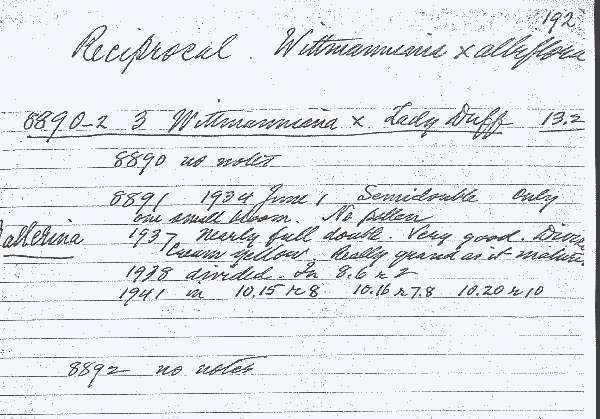 192
Reciprocal. Wittmanniana x albiflora
8890-2 3 Wittmanniana x Lady Duff 13.2
8890 no notes
8891 1934 June 1 Semidouble only
one small bloom. No pollen
Ballerina 1937 Nearly full double. Very good.
Cream yellow. Really grand as it matures.
1938 divided. In 8.6 r 2
1941 in 10.15 r 8 10.16 r 7.8 10.20 r 10
8892 no notes